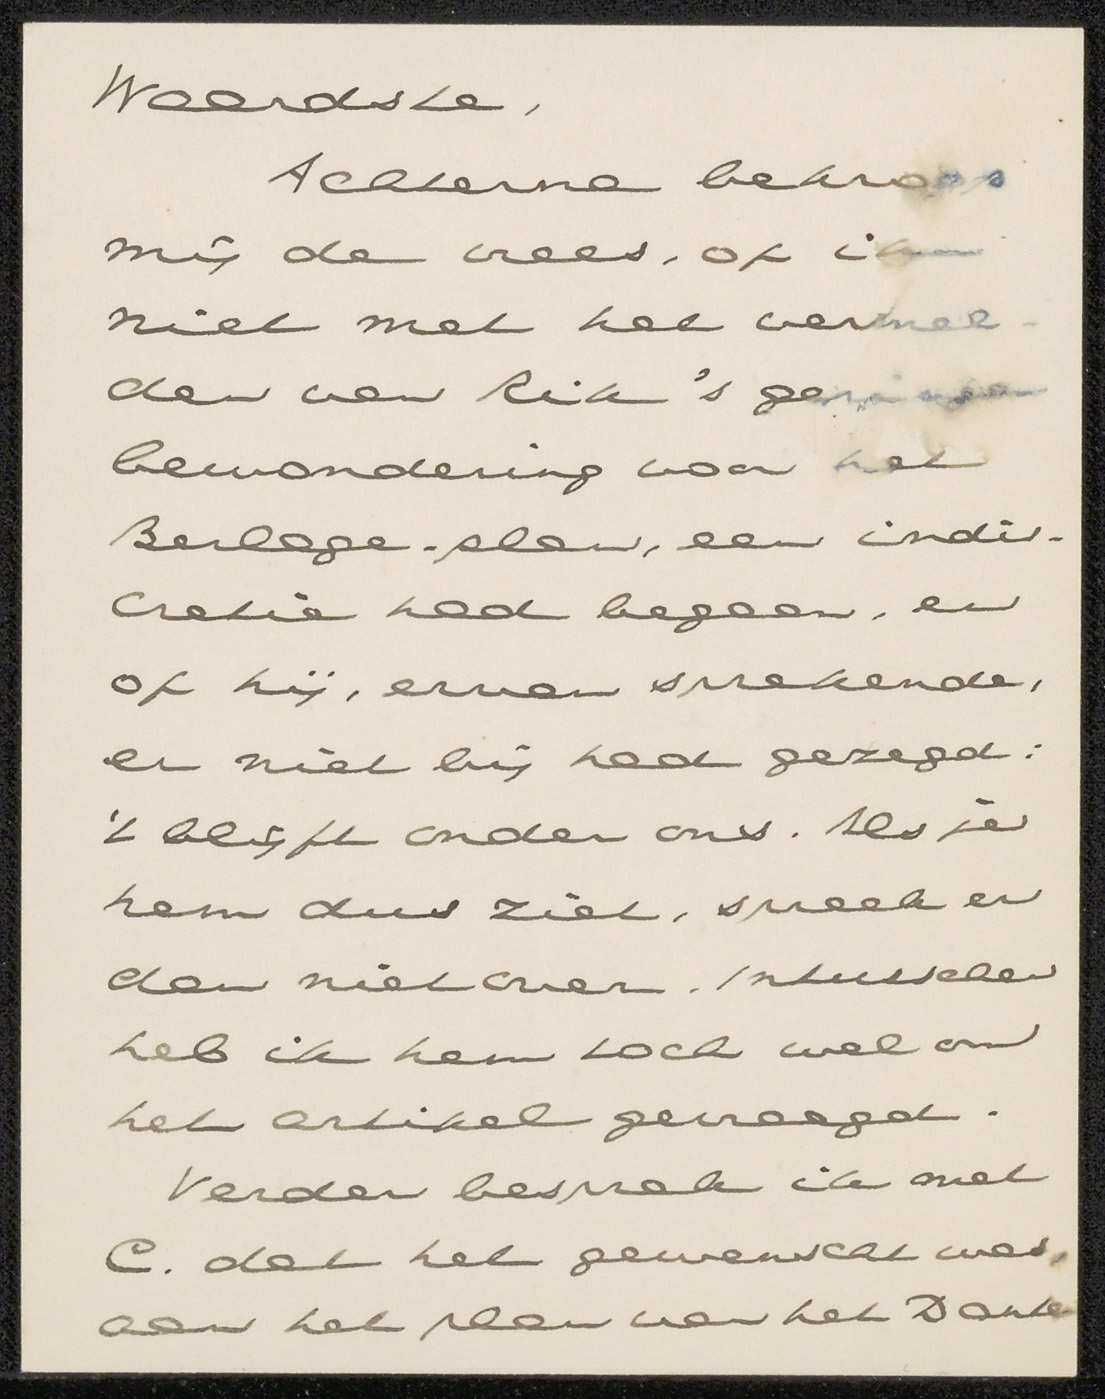 Waardste,
Achterna bekroop
mij de vrees, of ik
niet met het vermel-
den van Rik's geringen
bewondering voor het
Berlage-plan, een indis-
cretie had begaan, en
of hij, ervan sprekende,
er niet bij had gezegd:
't blijft onder ons. Als je
hem dus ziet, spreek er
dan niet over. Intusschen
heb ik hem toch wel om
het artikel gevraagd.
Verder besprak ik met
C. dat het gewenscht was,
aan het plan van het Dante